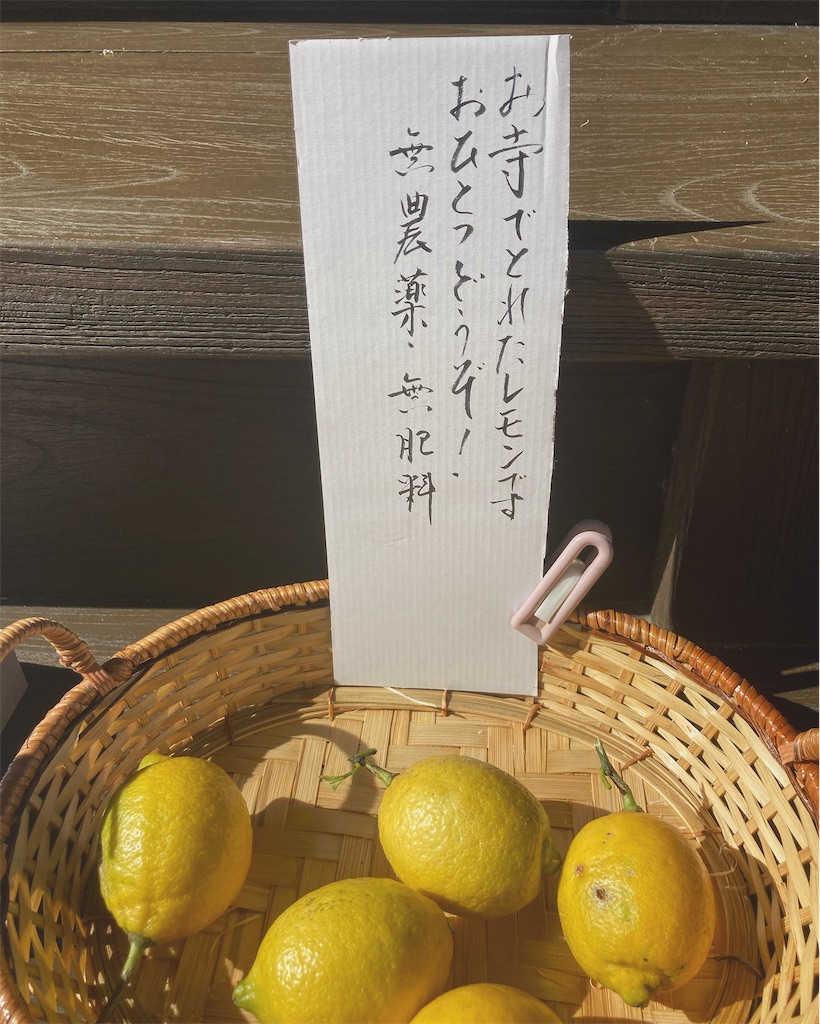 お寺でとれたレモンです
おひとつどうぞ！
無農薬、無肥料